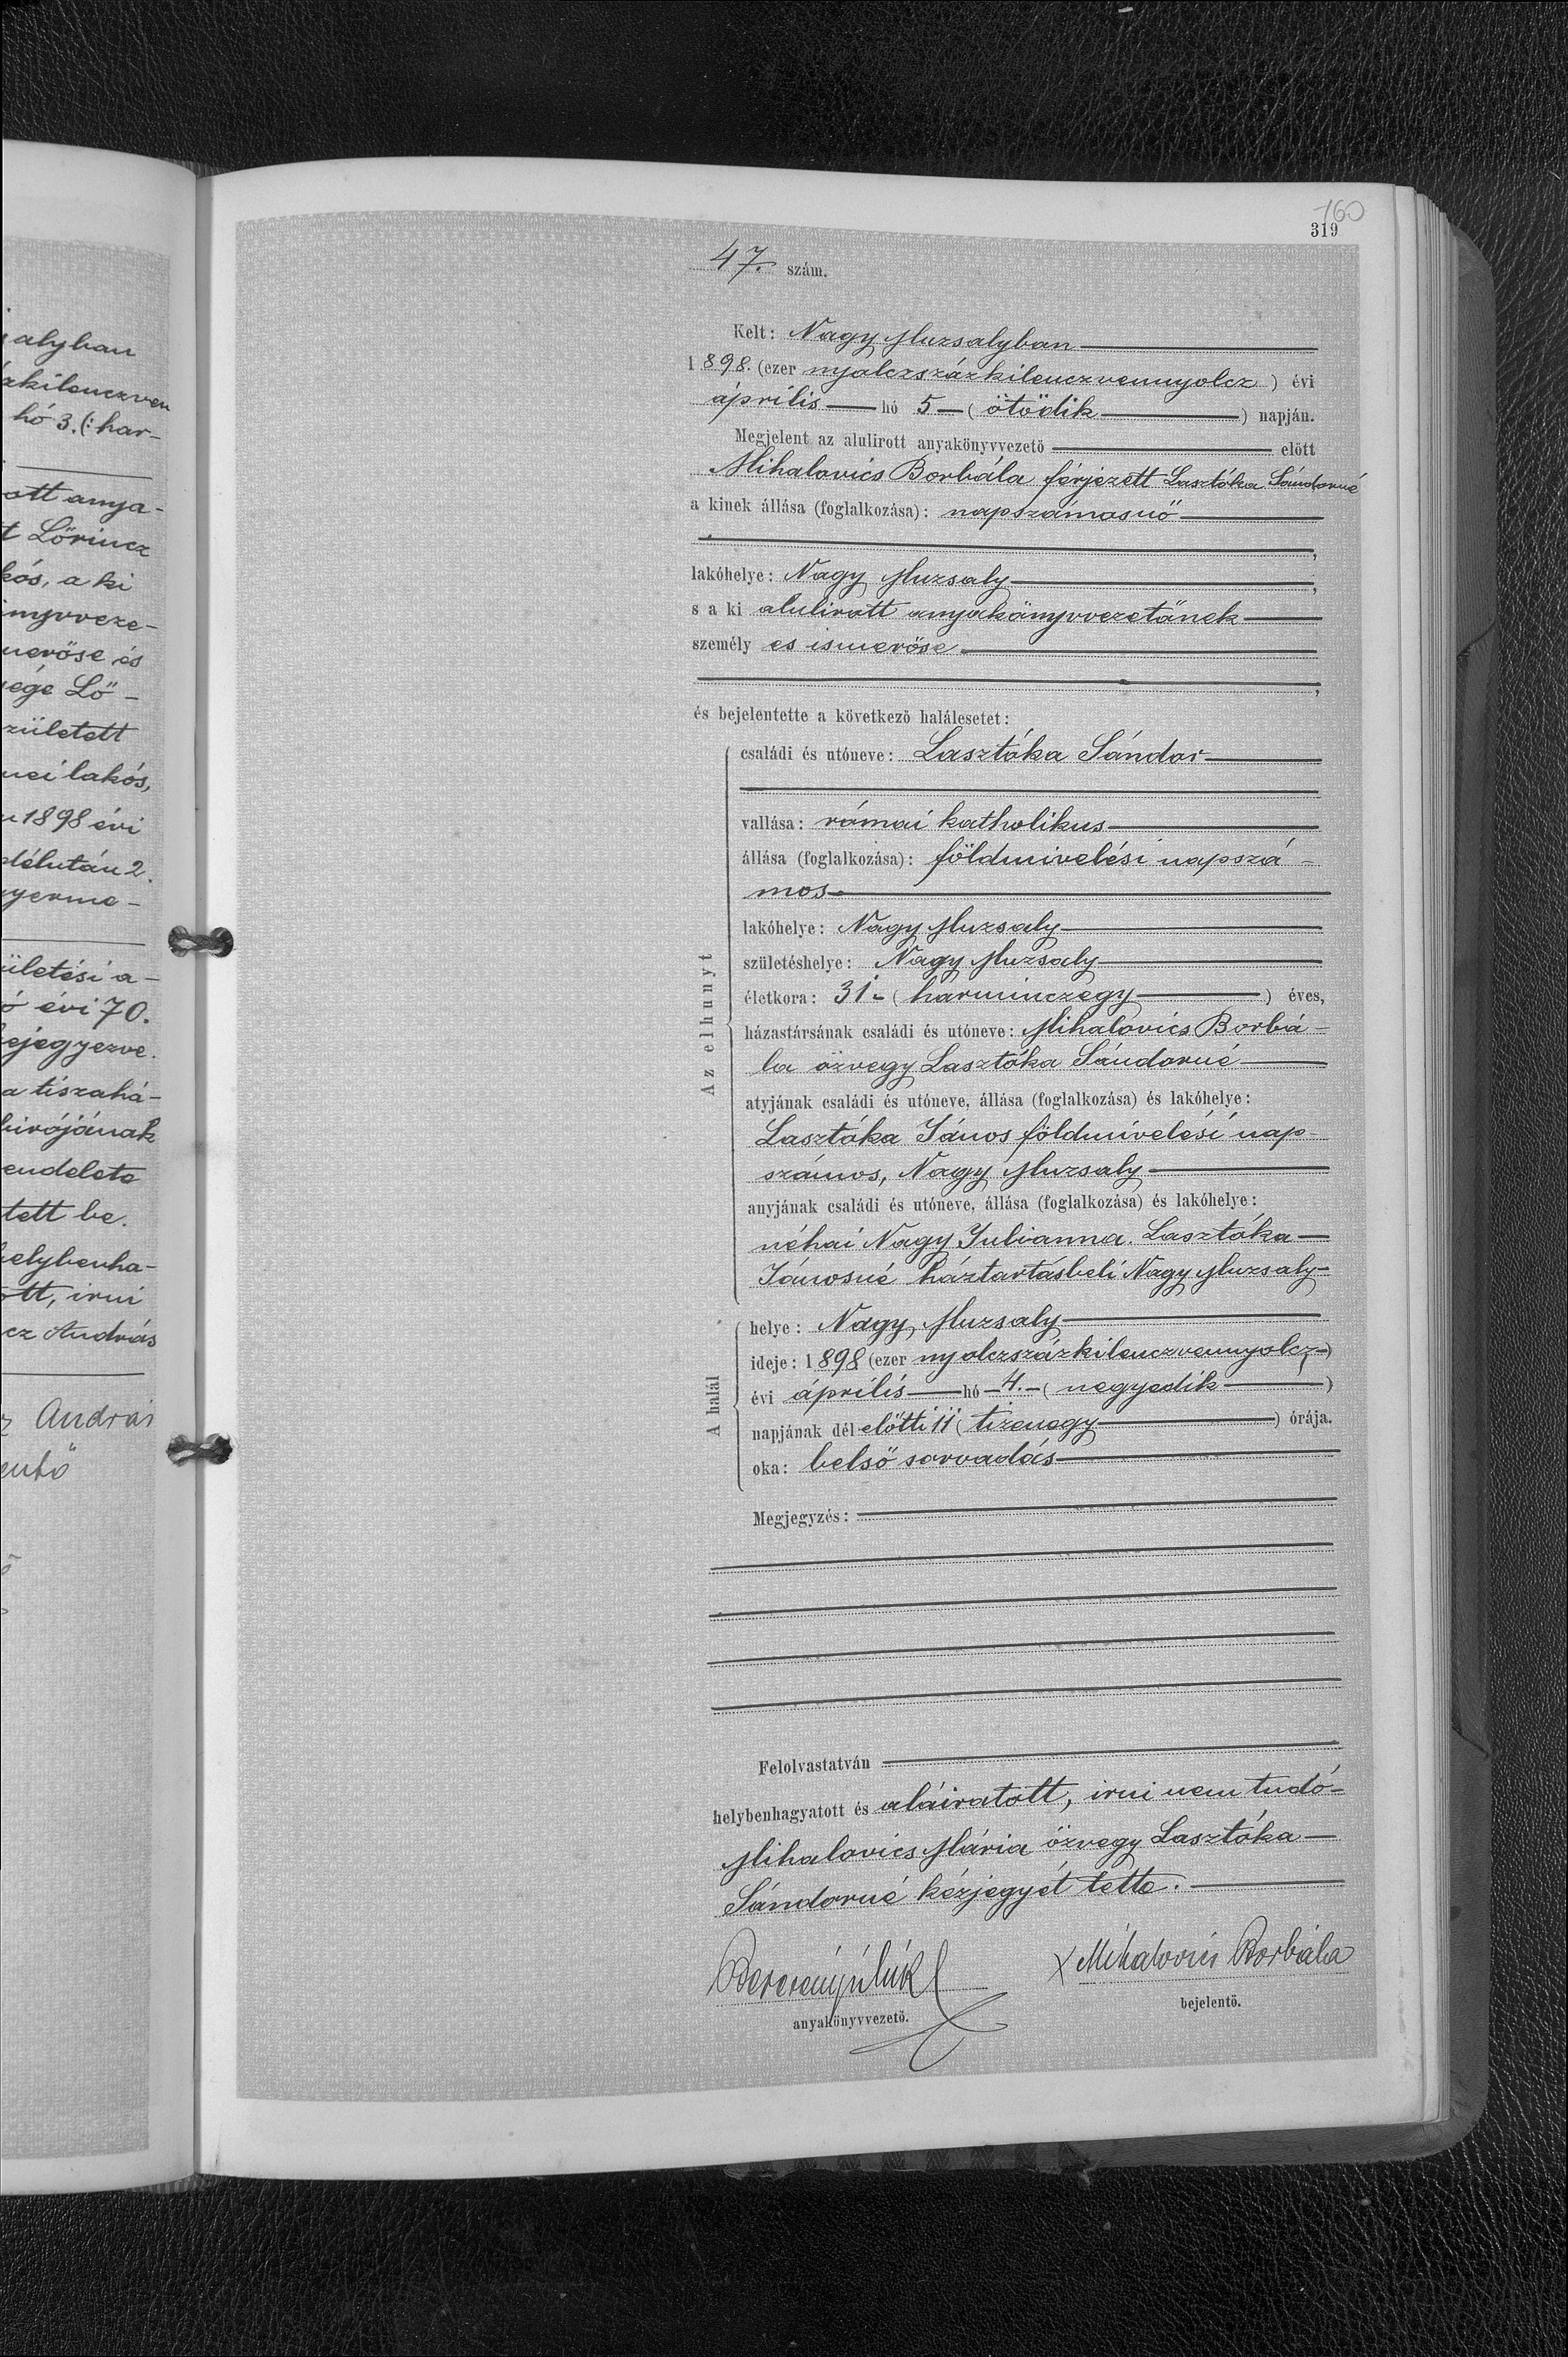 alyban
zkilenczven
hó 3.(: har-
ott anya-
t Lőrincz
kós, a ki
nyvveze-
merőse és
ege Lő-
született
nei lakós,
1898 évi
délután 2.
gyerme-
ületési a-
ó évi 70.
bejegyezve.
a tiszahá-
birójának
endelete
tett be.
helybenha-
ott, irni
cz András
András
160
319
47. szám.
Kelt: Nagy Muzsalyban
1898. (ezer nyolczszázkilenczvennyolcz) évi
április hó 5 (ötödik) napján.
Megjelent az alulirott anyakönyvvezető előtt
Mihalovics Borbála férjezett Lasztóka Sándorné
a kinek állása (foglalkozása): napszámosnő
,
lakóhelye: Nagy Muzsaly,
s a ki alulirott anyakönyvvezetőnek
személyes ismerőse.
,
és bejelentette a következő halálesetet:
Az elhunyt
családi és utóneve: Lasztóka Sándor
vallása: római katholikus
állása (foglalkozása): földmivelési napszá-
mos
lakóhelye: Nagy Muzsaly
születéshelye: Nagy Muzsaly
életkora: 31 (harminczegy) éves,
házastársának családi és utóneve: Mihalovics Borbá-
la özvegy Lasztóka Sándorné
atyjának családi és utóneve, állása (foglalkozása) és lakóhelye:
Lasztóka János földmívelési nap-
számos, Nagy Muzsaly
anyjának családi és utóneve, állása (foglalkozása) és lakóhelye:
néhai Nagy Julianna. Lasztóka
Jánosné háztartásbeli Nagy Muzsaly
A halál
helye: Nagy Muzsaly
ideje: 1898 (ezer nyolczszázkilenczvennyolcz)
évi április hó 4. (negyedik)
napjának dél előtti 11 (tizenegy) órája.
oka: belső sorvadás
Megjegyzés:
Felolvastatván
helybenhagyatott és aláiratott, irni nem tudó
Mihalovics Mária özvegy Lasztóka
Sándorné kézjegyét tette.
x Mihalovics Borbála
anyakönyvvezető.
bejelentő.